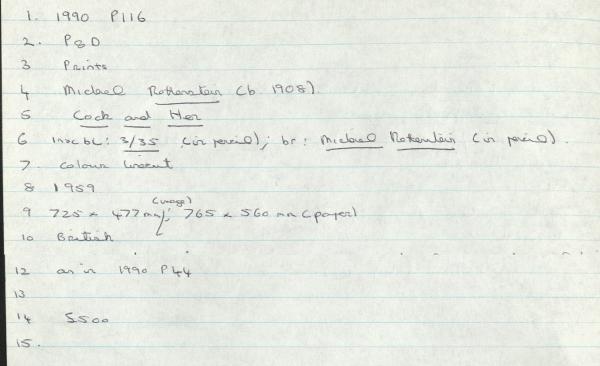 1. 1990 P116
2. P&D
3 Prints
4 Michael Rothenstein (b 1908).
5 Cock and Hen
6 Insc bl: 3/35 (in pencil); br: Michael Rothenstein (in pencil).
7 Colour linocut
8 1959
9 725 x 477 mm (image); 765 x 560 mm (paper)
10 British
12 as in 1990 P44
13
14 5500
15.